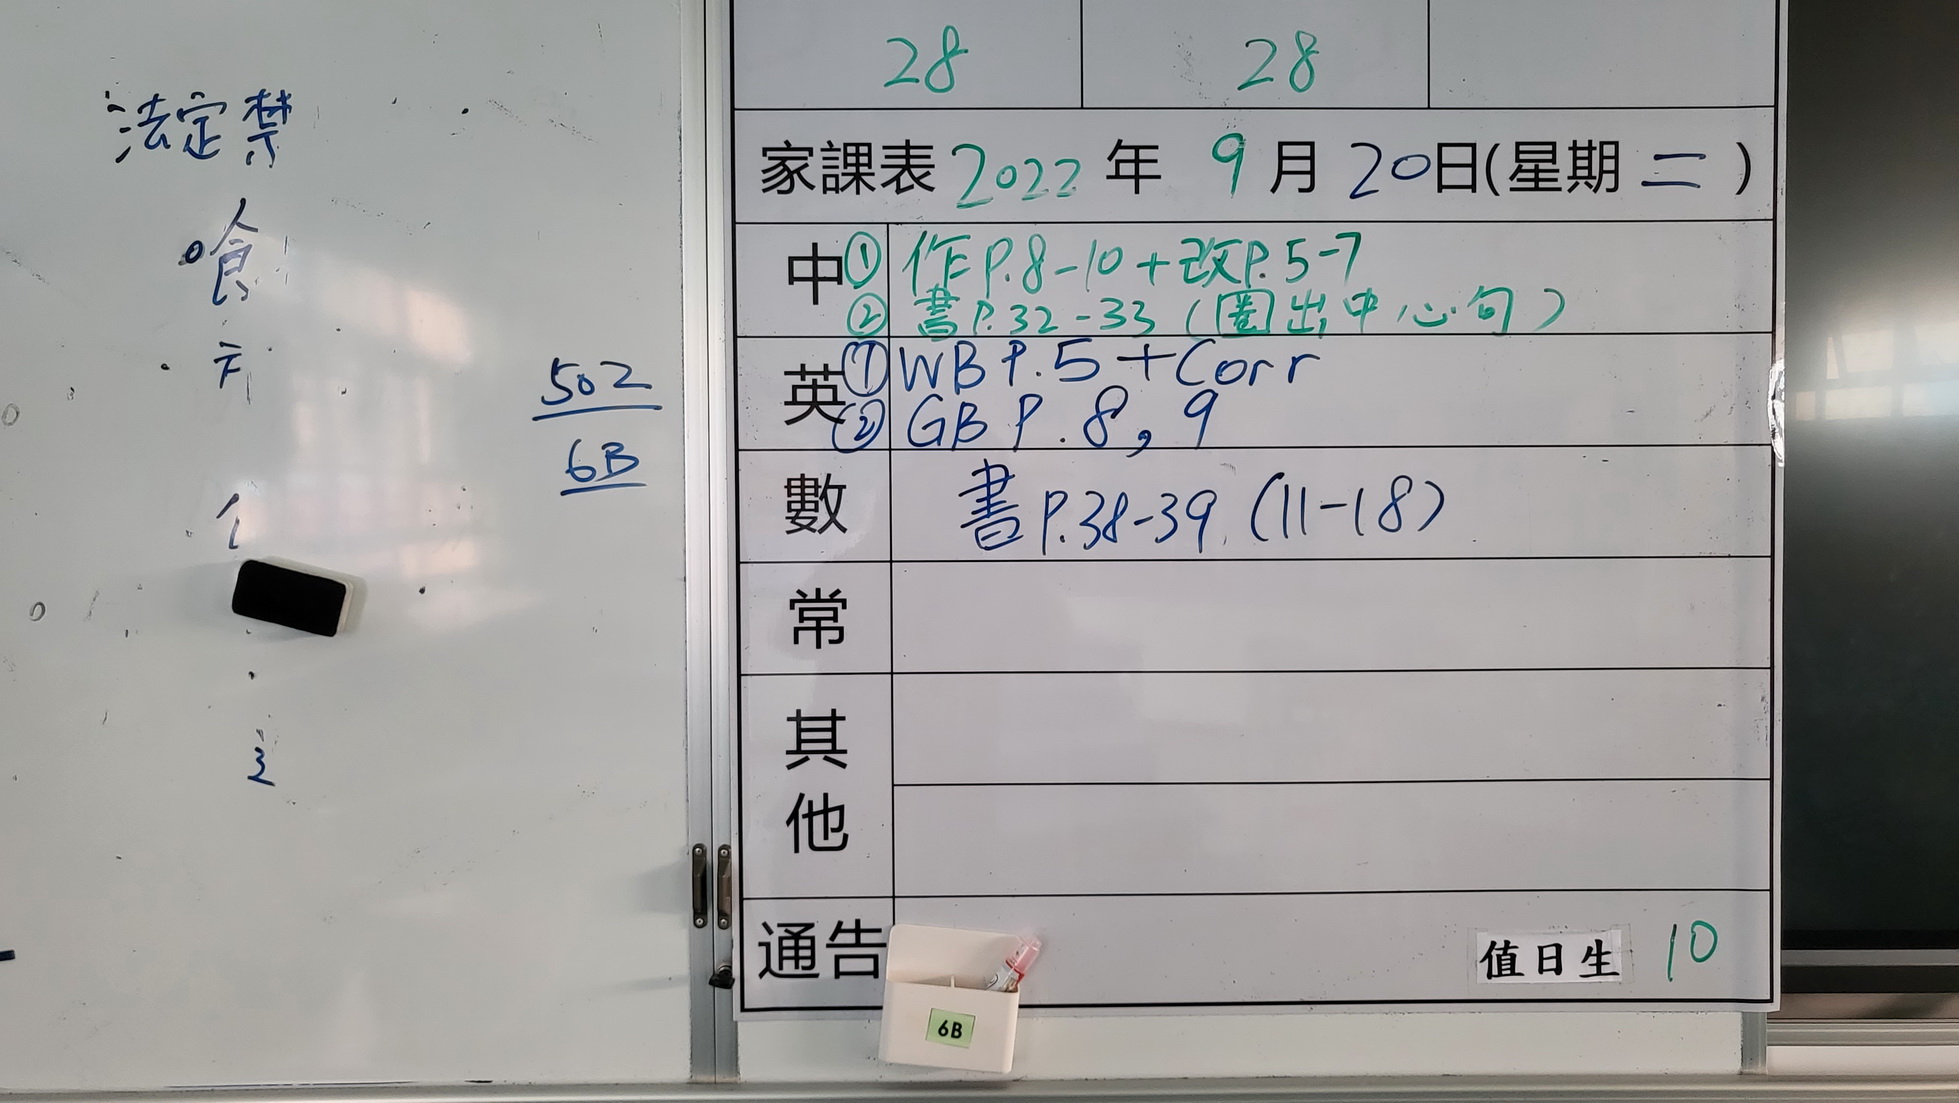 法定禁
喰
502
6B
28 28
家課表 2022 年 9 月 20 日(星期 二 )
中 ① 作P.8-10+改P.5-7
② 書P.32-33 (圈出中心句)
英 ① WB P.5 + Corr
② GB P. 8, 9
數 書P.38-39 (11-18)
常
其他
通告
值日生 10
6B